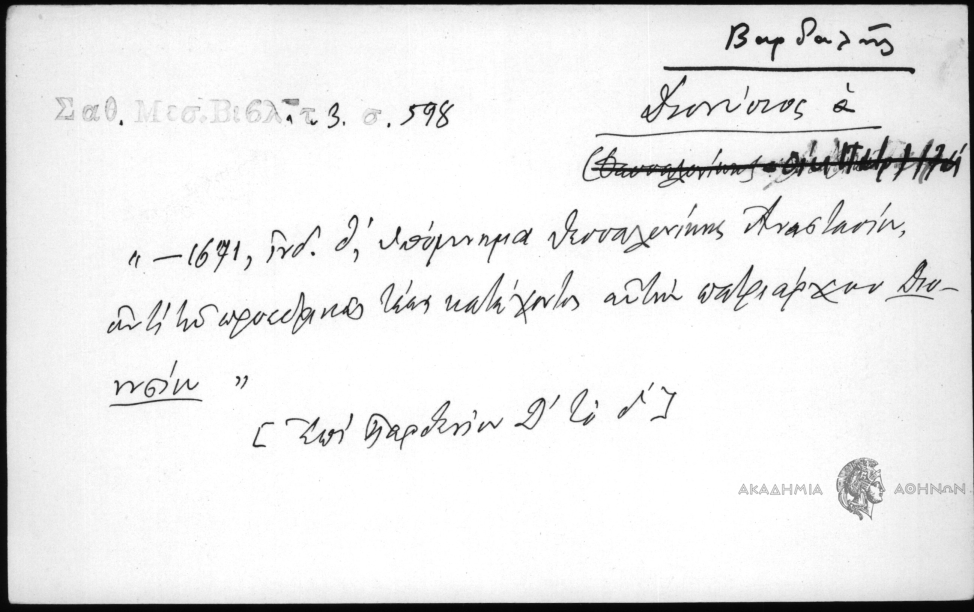 Βαρδαλῆς
Σαθ. Μεσ. Βιβλ. τ. 3. σ. 598
Διονύσιος ὁ
(Θεσσαλονίκης
" — 1671, ἰνδ. θ', ὑπόμνημα Θεσσαλονίκης Ἀναστασίου,
ἀντὶ τοῦ προεδρικῶς τέως κατέχοντος αὐτὴν πατριάρχου Διο-
νυσίου "
[ Ἐπὶ Παρθενίου Δ' τὸ δ' ]
ΑΚΑΔΗΜΙΑ ΑΘΗΝΩΝ